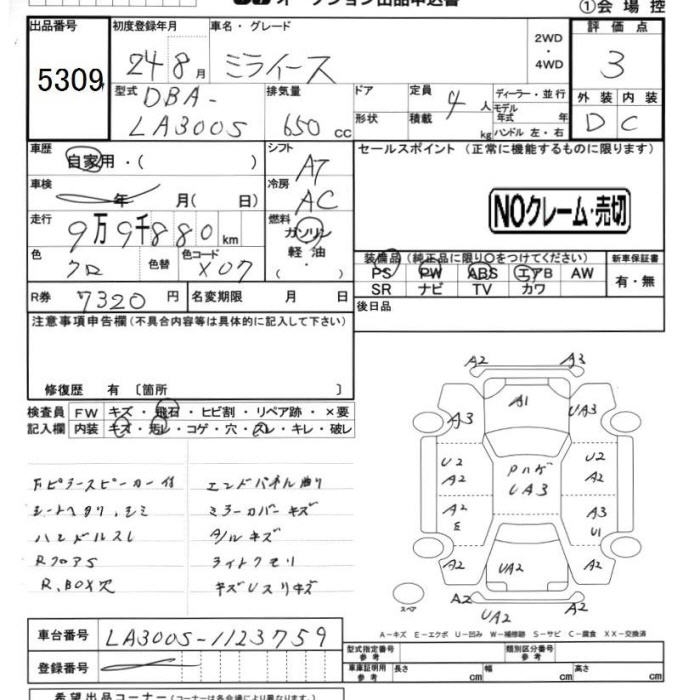 オークション出品申込書
①会場控
出品番号 初度登録年月 車名・グレード 2WD・4WD 評価点
5309 24 8月 ミライース 3
型式 DBA-LA300S 排気量 650cc ドア 形状 定員 4人 積載 kg ディーラー・並行 モデル年式 年 ハンドル 左・右
外装 内装
D C
車歴 自家用・( ) シフト AT セールスポイント (正常に機能するものに限ります)
車検 年 月( 日) 冷房 AC
NOクレーム・売切
走行 9万9千880km 燃料 ガソリン 軽油 ・( )
色 クロ 色替 色コード X07
装備品 (純正品に限り○をつけてください) 新車保証書
PS PW ABS エアB AW 有・無
SR ナビ TV カワ
R券 7320円 名変期限 月 日 後日品
注意事項申告欄 (不具合内容等は具体的に記入して下さい)
修復歴 有 〔箇所 〕
検査員 FW キズ・飛石・ヒビ割・リペア跡・×要
記入欄 内装 キズ・汚レ・コゲ・穴・スレ・キレ・破レ
エンドパネル曲り
シートヘタリ、シミ ミラーカバーキズ
ハンドルスレ
RフロアS ライトクモリ
R.BOX穴
A2 A3
A1
A3 UA3
U2 A2 PハゲUA3 U2 A2
A2 E A3 U1
A2 UA2 A2
スペア A2 UA2 A2
A-キズ E-エクボ U-凹み W-補修跡 S-サビ C-腐食 XX-交換済
車台番号 LA300S-1123759
登録番号
型式指定番号 参考 類別区分番号 参考
車庫証明用 参考 長さ cm 幅 cm 高さ cm
希望出品コーナー (コーナーは各会場により異なります。)